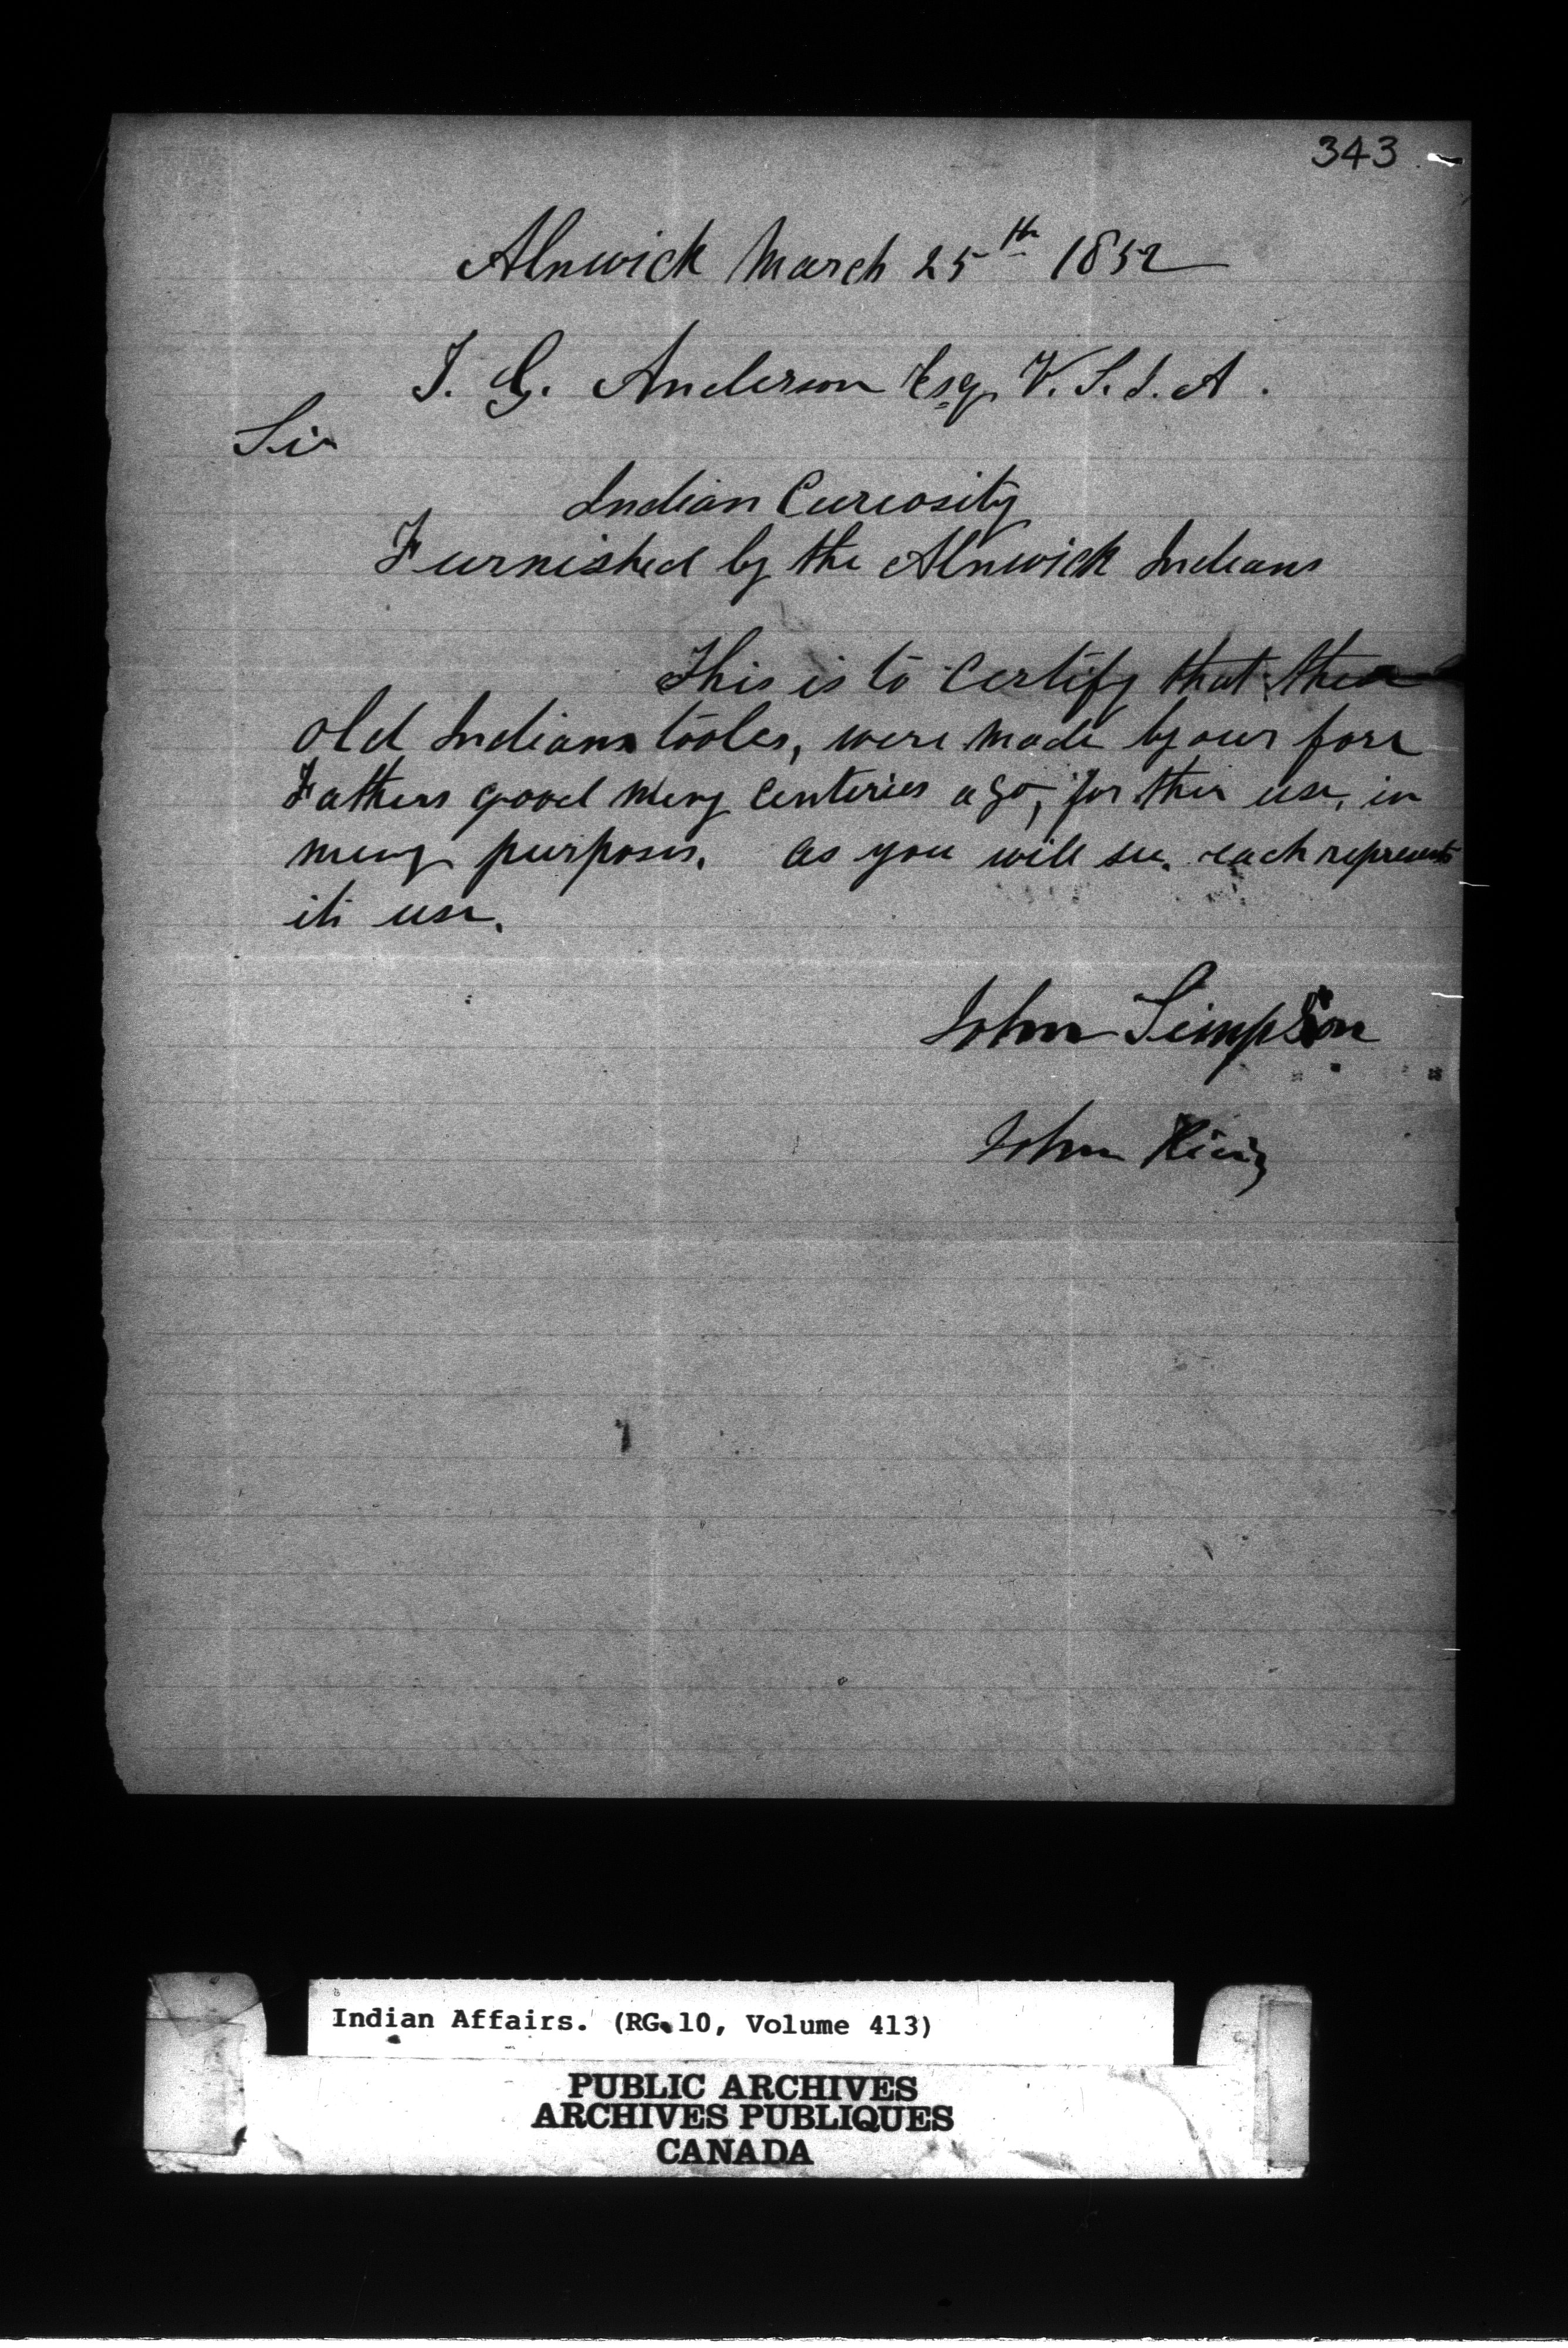 343
Alnwick March 25th 1852
T. G. Anderson Esq. V. S. I. A.
Sir
Indian Curiosity
Furnished by the Alnwick Indians
This is to Certify that these
old Indians tooles, were made by our fore
Fathers good meny Centeries ago, for their use, in
meny purposes. as you will see. each represents
its use.
John Simpson
John King
Indian Affairs. (RG 10, Volume 413)
PUBLIC ARCHIVES
ARCHIVES PUBLIQUES
CANADA